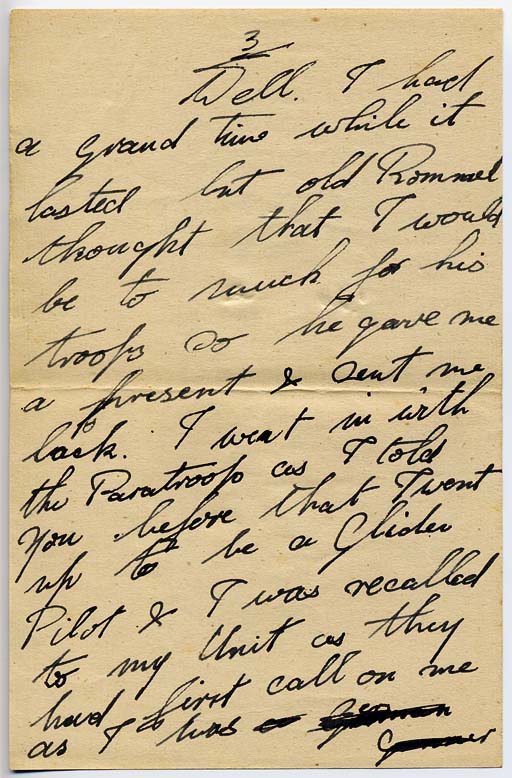 3
Well. I had
a grand time while it
lasted but old Rommel
thought that I would
be to much for his
troops so he gave me
a present & sent me
back. I went in with
the Paratroop as I told
you before that I went
up to be a Glider
Pilot & I was recalled
to my Unit as they
had first call on me
as I was